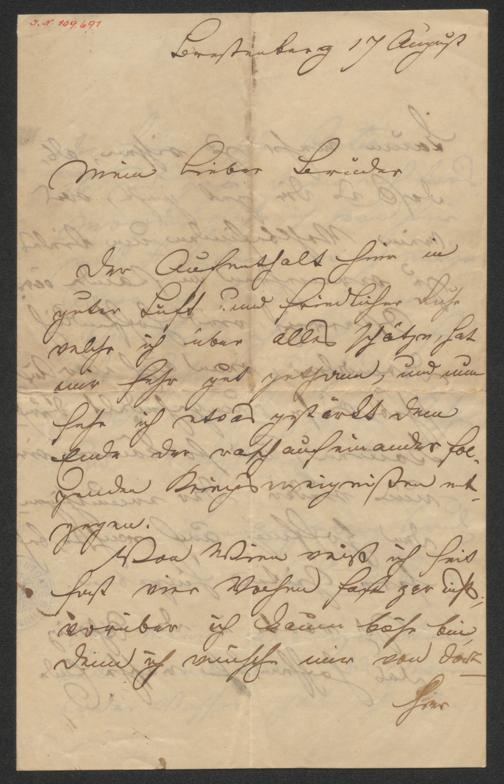 J.N 109.691
Brestenberg 17 August
Mein lieber Bruder
Der Aufenthalt hier in
guter Luft und friedlicher Ruhe
welche ich über alles schätze, hat
mir sehr gut gethan, und nun
sehe ich etwas gestärkt dem
Ende der rasch aufeinander fol-
genden Kriegsereignißen ent-
gegen.
Von Wien weiß ich seit
fast vier Wochen fast gar nichts,
worüber ich kaum böse bin
denn ich wünsche mir von dort
hier